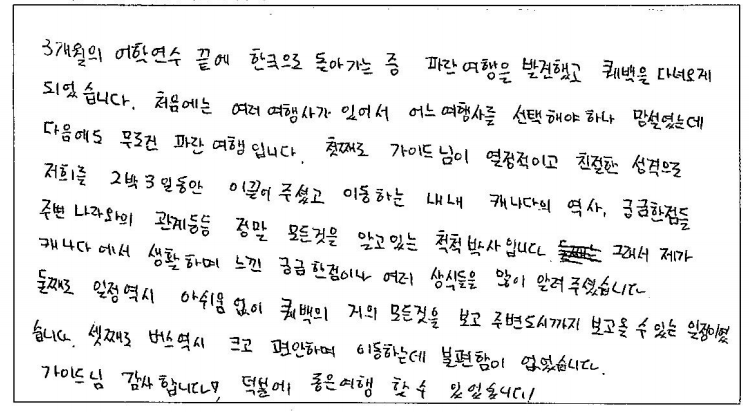 3개월의 어학연수 끝에 한국으로 돌아가는 중 파란여행을 발견했고 퀘백을 다녀오게
되었습니다. 처음에는 여러여행사가 있어서 어느여행사를 선택해야하나 망설였는데
다음에도 무조건 파란 여행입니다. 첫째로 가이드님이 열정적이고 친절한 성격으로
저희를 2박3일동안 이끌어 주셨고 이동하는 내내 캐나다의 역사, 궁금한점들
주변 나라와의 관계등등 정말 모든것을 알고있는 척척박사입니다. 그래서 제가
캐나다에서 생활하며 느낀 궁금한점이나 여러 상식들을 많이 알려주셨습니다.
둘째로 일정역시 아쉬움없이 퀘백의 거의 모든것을 보고 주변도시까지 보고올 수 있는 일정이였
습니다. 셋째로 버스역시 크고 편안하며 이동하는데 불편함이 없었습니다.
가이드님 감사합니다 덕분에 좋은여행 할 수 있었습니다!